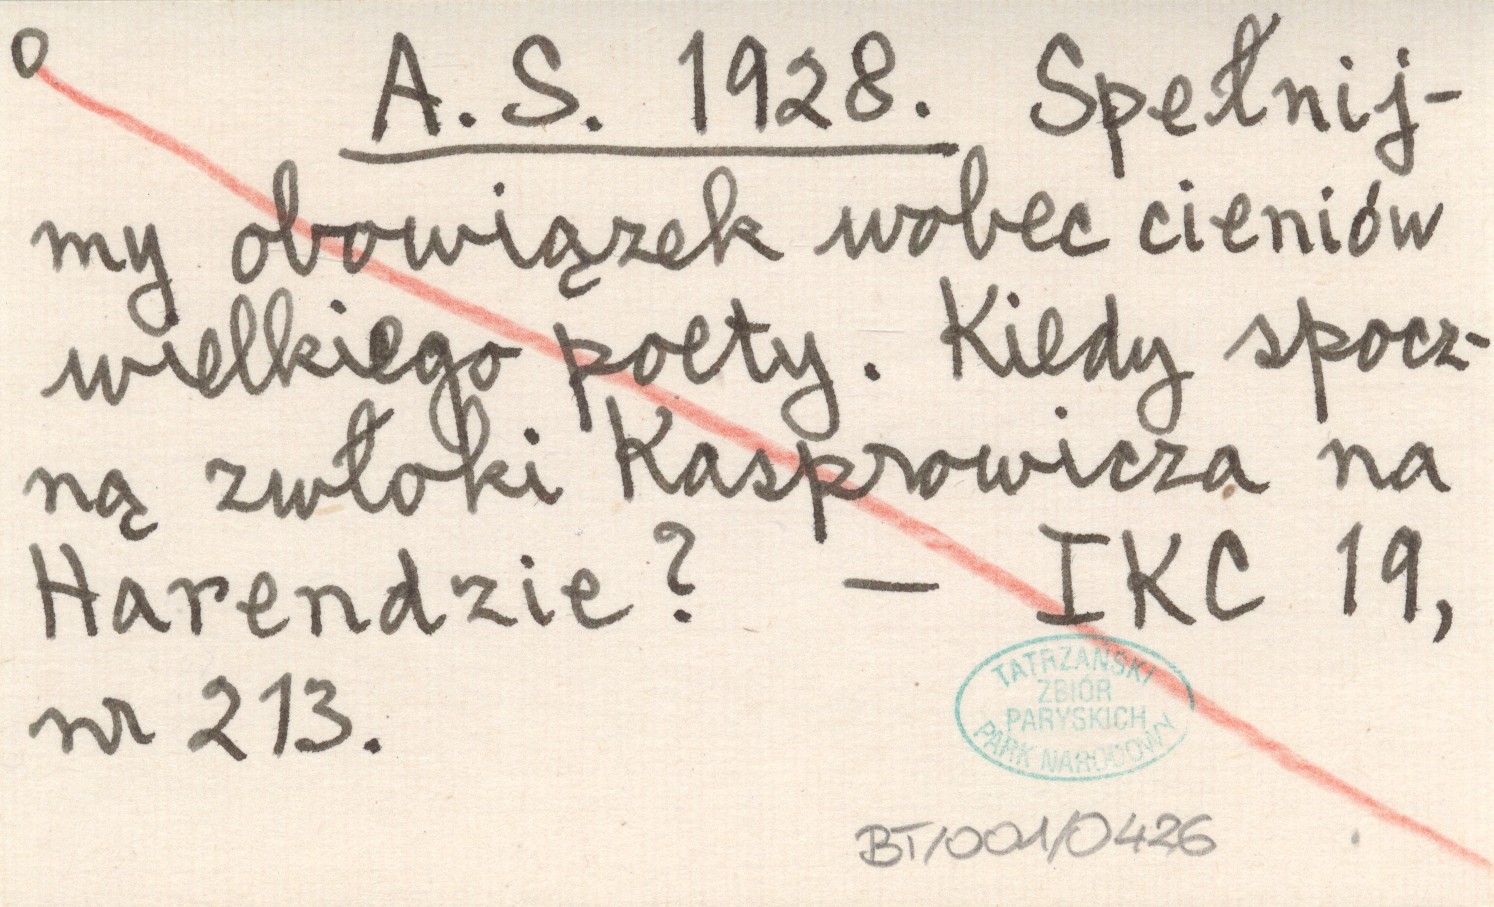 o A. S. 1928. Spełnij-
my obowiązek wobec cieniów
wielkiego poety. Kiedy spocz-
ną zwłoki Kasprowicza na
Harendzie? — IKC 19,
nr 213.
TATRZAŃSKI
ZBIÓR
PARYSKICH
PARK NARODOWY
BT/001/0426